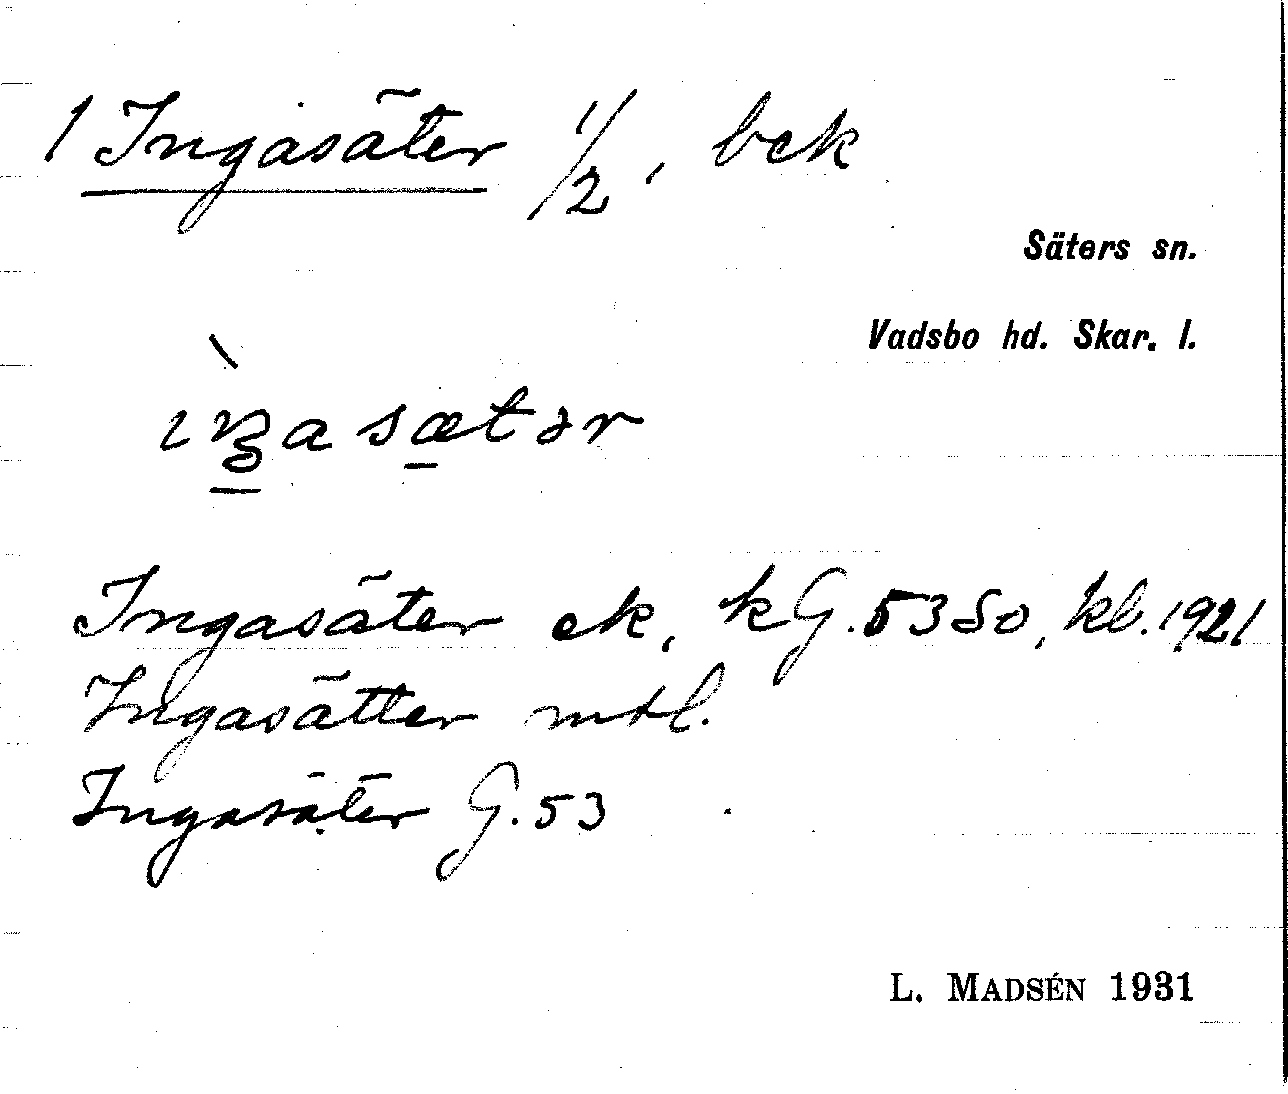 1 Ingasäter 1/2, bek
Säters sn.
Vadsbo hd. Skar. l.
ìŋasætər
Ingasäter ek, kG. 53 So, kb. 1921
Ingasätter mtl.
Ingasäter G. 53
L. MADSÉN 1931